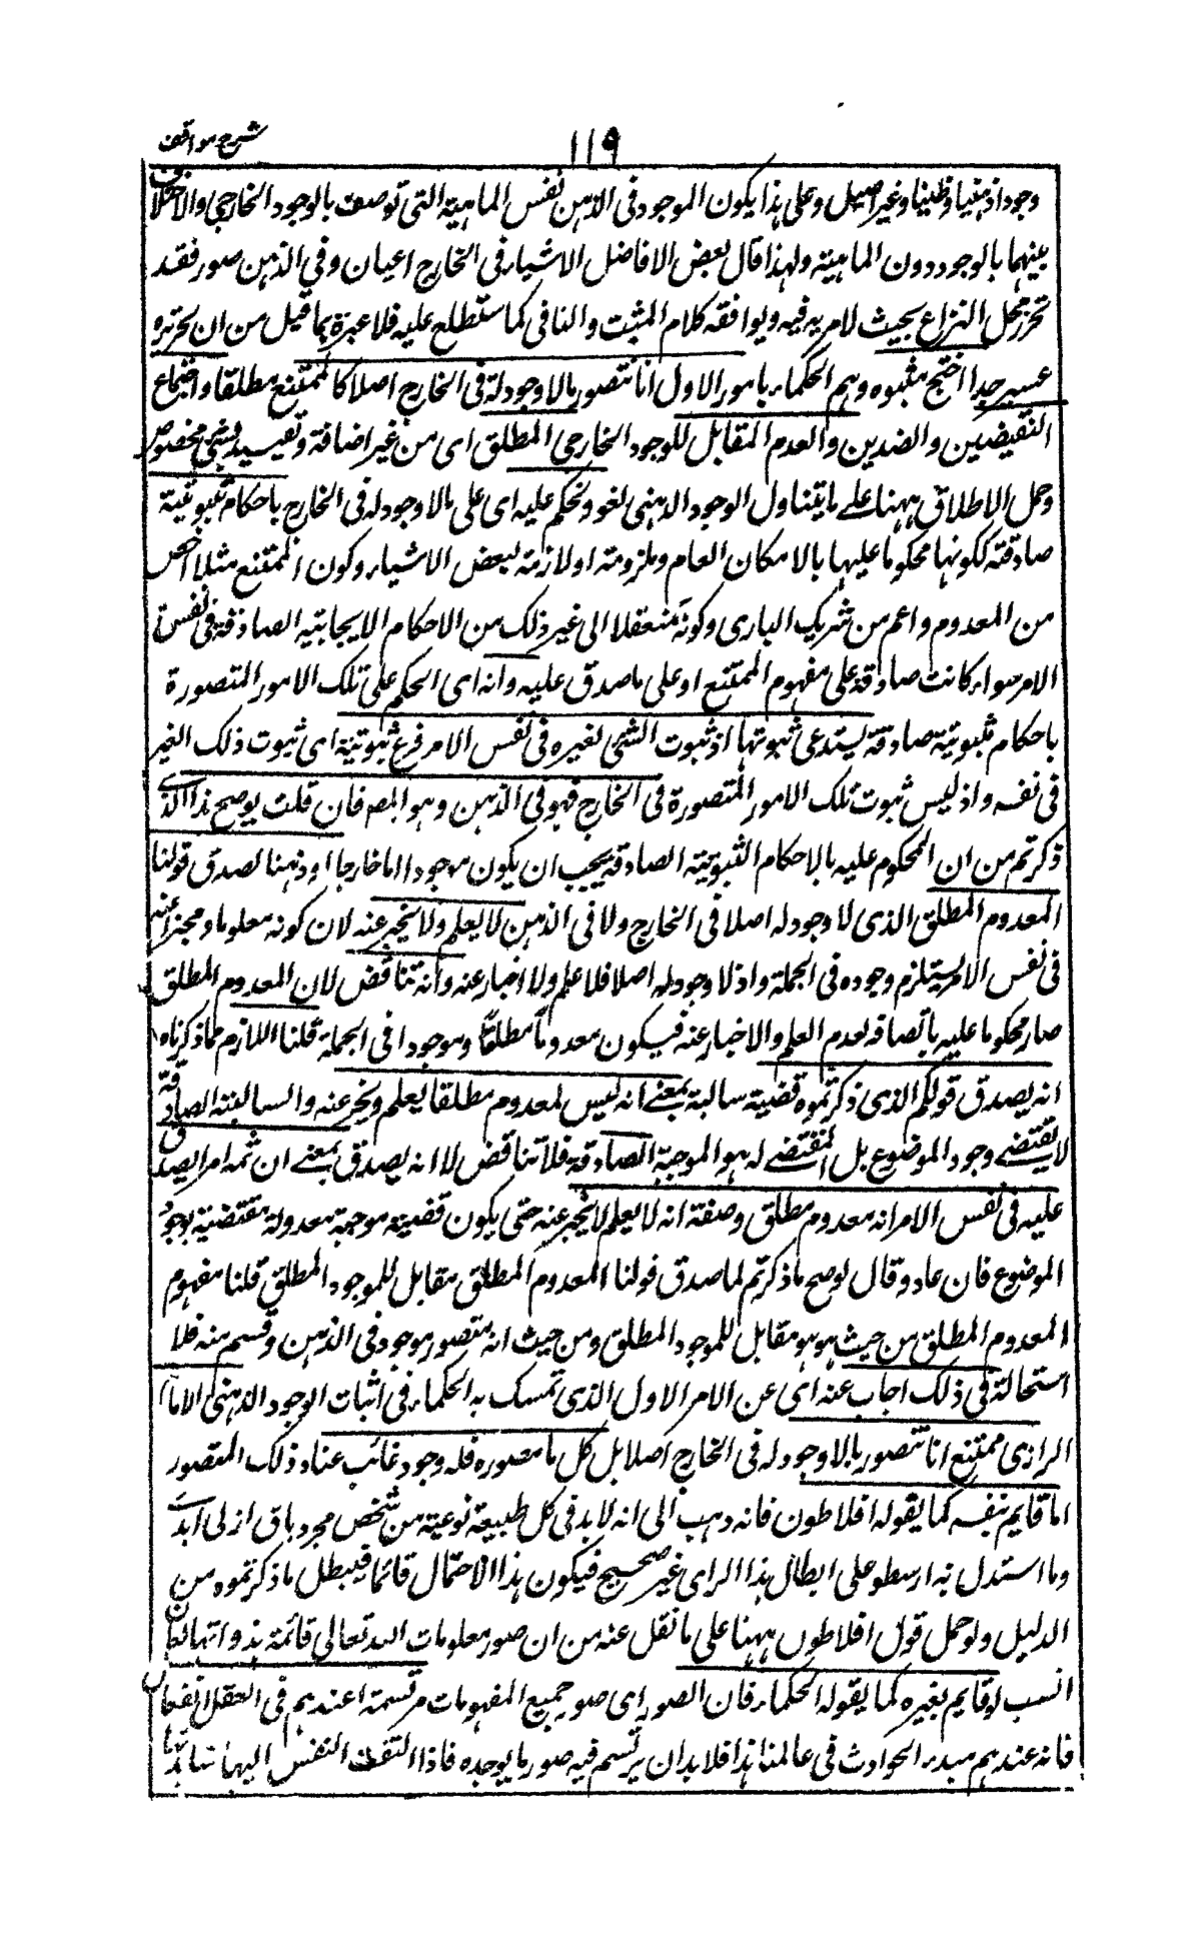 شرح مواقف
١١٩
وجودا ذهنيا وظليا وغير اصيل وعلى هذا يكون الموجود فى الذهن نفس الماهية التى توصف بالوجود الخارجى والاختلاف
بينهما بالوجود دون الماهية ولهذا قال بعض الافاضل الاشياء فى الخارج اعيان وفى الذهن صور فقد
تحرر محل النزاع بحيث لا مرية فيه ويوافقه كلام المثبت والنافى كما ستطلع عليه فلا عبرة بما قيل من ان تحريره
عسير جدا احتج مثبتوه وهم الحكماء بامور الاول انا نتصور ما لا وجود له فى الخارج اصلا كالممتنع مطلقا واجتماع
النقيضين والضدين والعدم المقابل للوجود الخارجى المطلق اى من غير اضافة وتقييد بشئ مخصوص
وحمل الاطلاق ههنا على ما يتناول الوجود الذهنى لغو ونحكم عليه اى على ما لا وجود له فى الخارج باحكام ثبوتية
صادقة ككونها محكوما عليها بالامكان العام وملزومة او لازمة لبعض الاشياء وكون الممتنع مثلا اخص
من المعدوم واعم من شريك البارى وكونه متعقلا الى غير ذلك من الاحكام الايجابية الصادقة فى نفس
الامر سواء كانت صادقة على مفهوم الممتنع او على ما صدق عليه وانه اى الحكم على تلك الامور المتصورة
باحكام ثبوتية صادقة يستدعى ثبوتها اذ ثبوت الشئ لغيره فى نفس الامر فرع ثبوتية اى ثبوت ذلك الغير
فى نفسه واذ ليس ثبوت تلك الامور المتصورة فى الخارج فهو فى الذهن وهو المط فان قلت لو صح هذا الذى
ذكرتم من ان المحكوم عليه بالاحكام الثبوتية الصادقة يجب ان يكون موجودا اما خارجا او ذهنا لصدق قولنا
المعدوم المطلق الذى لا وجود له اصلا فى الخارج ولا فى الذهن لا يعلم ولا يخبر عنه لان كونه معلوما ومخبرا عنه
فى نفس الامر يستلزم وجوده فى الجملة واذ لا وجود له اصلا فلا علم ولا اخبار عنه وانه تناقض لان المعدوم المطلق
صار محكوما عليه باتصافه بعدم العلم والاخبار عنه فيكون معدوما مطلقا وموجودا فى الجملة قلنا اللازم مما ذكرناه
انه يصدق قولكم الذى ذكرتموه قضية سالبة بمعنى انه ليس المعدوم مطلقا يعلم ويخبر عنه والسالبة الصادقة
لا يقتضى وجود الموضوع بل المقتضى له هو الموجبة الصادقة فلا تناقض لا انه يصدق بمعنى ان ثمه امرا يصدق
عليه فى نفس الامر انه معدوم مطلق وصفة انه لا يعلم لا يخبر عنه حتى يكون قضية موجبة معدولة مقتضية بوجود
الموضوع فان عاد وقال لو صح ما ذكرتم لما صدق قولنا المعدوم المطلق مقابل للموجود المطلق قلنا مفهوم
المعدوم المطلق من حيث هو هو مقابل للموجود المطلق ومن حيث انه متصور موجود فى الذهن وقسم منه فلا
استحالة فى ذلك اجاب عنه اى عن الامر الاول الذى تمسك به الحكماء فى اثبات الوجود الذهنى الامام
الرازى ممتنع انا نتصور ما لا وجود له فى الخارج اصلا بل كل ما نصوره فله وجود غائب عنا وذلك المتصور
اما قايم بنفسه كما يقوله افلاطون فانه ذهب الى انه لا بد فى كل طبيعة نوعية من شخص مجرد باق ازلى ابدى
وما استدل به ارسطو على ابطال هذا الراى غير صحيح فيكون هذا الاحتمال قائما فيبطل ما ذكرتموه من
الدليل ولو حمل قول افلاطون ههنا على ما نقل عنه من ان صور معلومات الله تعالى قائمة بذواتها لكان
انسب او قايم بغيره كما يقوله الحكماء فان الصور اى صور جميع المفهومات مرتسمة عندهم فى العقل الفعال
فانه عندهم مبدء الحوادث فى عالمنا هذا فلا بد ان يرتسم فيه صور ما يوجده فاذا التفت النفس اليها شاهدتها